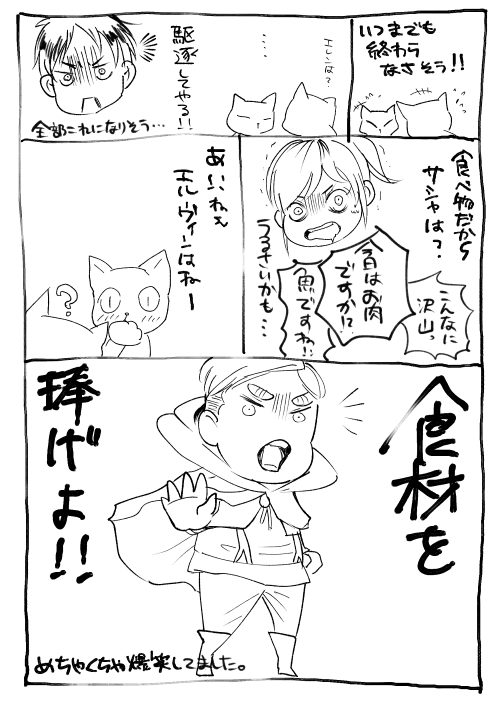 いつまでも
終わら
なさそう!!
エレンは?
・・・
駆逐してやる!!
全部これになりそう…
食べ物だから
サシャは?
こんなに
沢山っ
今日はお肉
ですか!?
魚ですね!!
うるさいかも…
あいいねぇ
エルヴィンはねー
?
食材を
捧げよ!!
めちゃくちゃ爆笑してました。